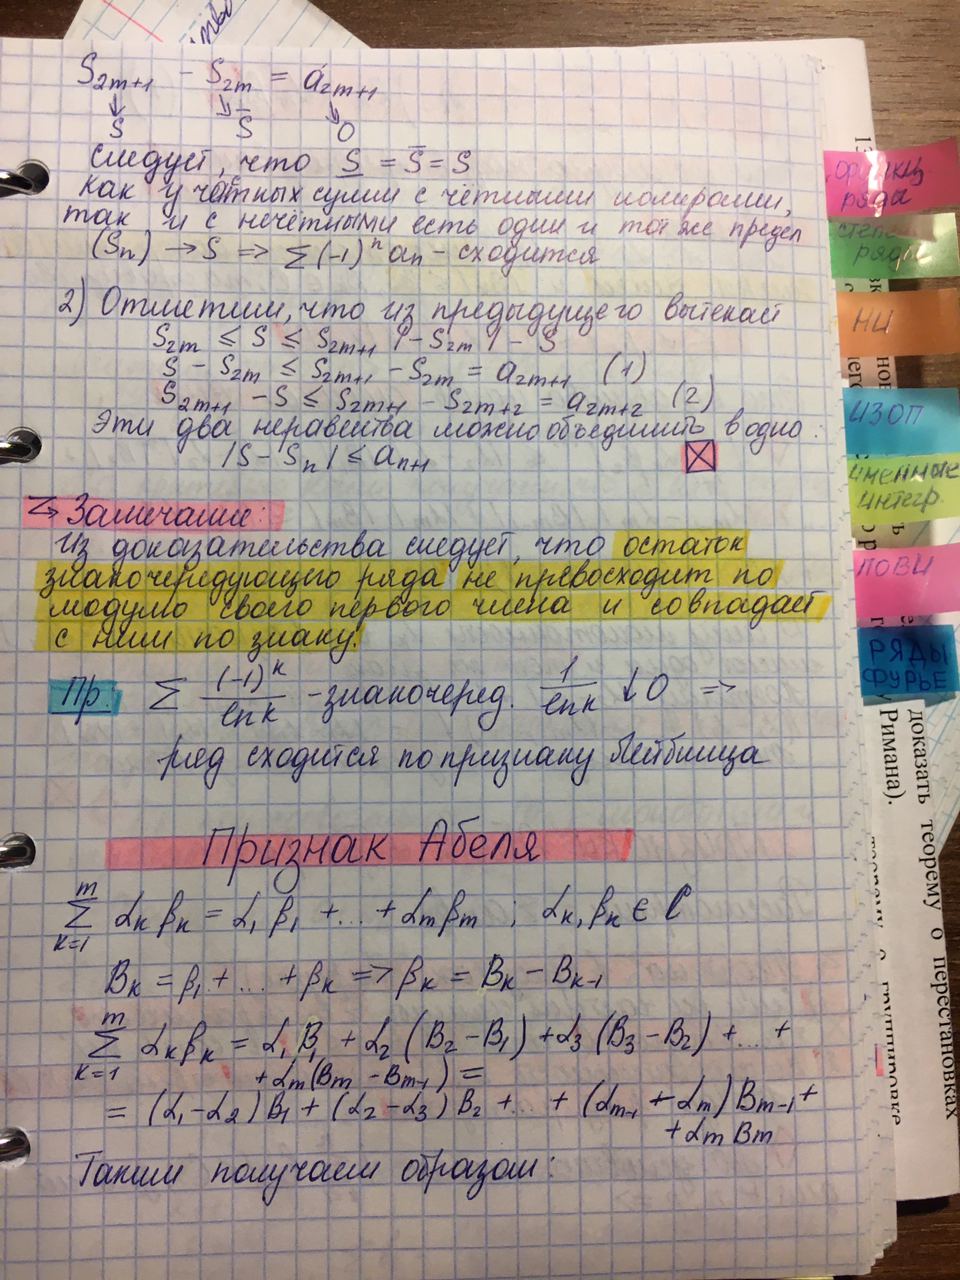 S₂ₘ₊₁ - S₂ₘ = a₂ₘ₊₁
↓ ↓ ↓
S S̅ 0
следует, что S̲ = S̅ = S
как у частных сумм с чётными номерами,
так и с нечётными есть один и тот же предел
(Sₙ) → S => Σ(-1)ⁿ aₙ - сходится
2) Отметим, что из предыдущего вытекает
S₂ₘ ≤ S ≤ S₂ₘ₊₁ |-S₂ₘ | - S
S - S₂ₘ ≤ S₂ₘ₊₁ - S₂ₘ = a₂ₘ₊₁ (1)
S₂ₘ₊₁ - S ≤ S₂ₘ₊₁ - S₂ₘ₊₂ = a₂ₘ₊₂ (2)
Эти два неравенства можно объединить в одно:
|S - Sₙ| ≤ aₙ₊₁
Замечание:
Из доказательства следует, что остаток
знакочередующего ряда не превосходит по
модулю своего первого члена и совпадает
с ним по знаку.
Пр: Σ (-1)ᵏ/ln k - знакочеред. 1/ln k ↓ 0 =>
ряд сходится по признаку Лейбница
Признак Абеля
Σₖ₌₁ᵐ αₖβₖ = α₁β₁ + ... + αₘβₘ ; αₖ, βₖ ∈ ℂ
Bₖ = β₁ + ... + βₖ => βₖ = Bₖ - Bₖ₋₁
Σₖ₌₁ᵐ αₖβₖ = α₁B₁ + α₂(B₂ - B₁) + α₃(B₃ - B₂) + ... +
+ αₘ(Bₘ - Bₘ₋₁) =
= (α₁ - α₂)B₁ + (α₂ - α₃)B₂ + ... + (αₘ₋₁ - αₘ)Bₘ₋₁ +
+ αₘBₘ
Таким получаем образом:
ряды
ряды
НИ
ИЗОП
интегр.
ПОВИ
РЯДЫ
ФУРЬЕ
доказать теорему о перестановках
Римана).